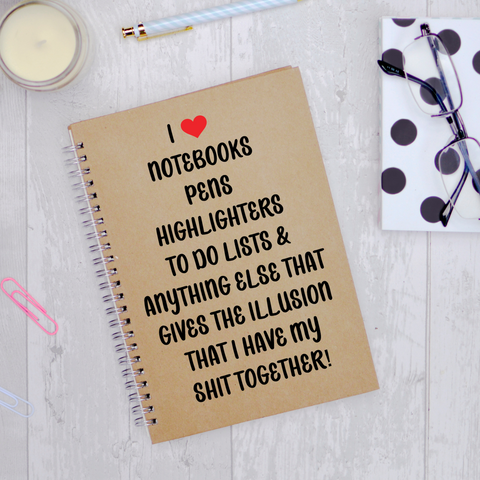 I ❤
NOTEBOOKS
PENS
HIGHLIGHTERS
TO DO LISTS &
ANYTHING ELSE THAT
GIVES THE ILLUSION
THAT I HAVE MY
SHIT TOGETHER!